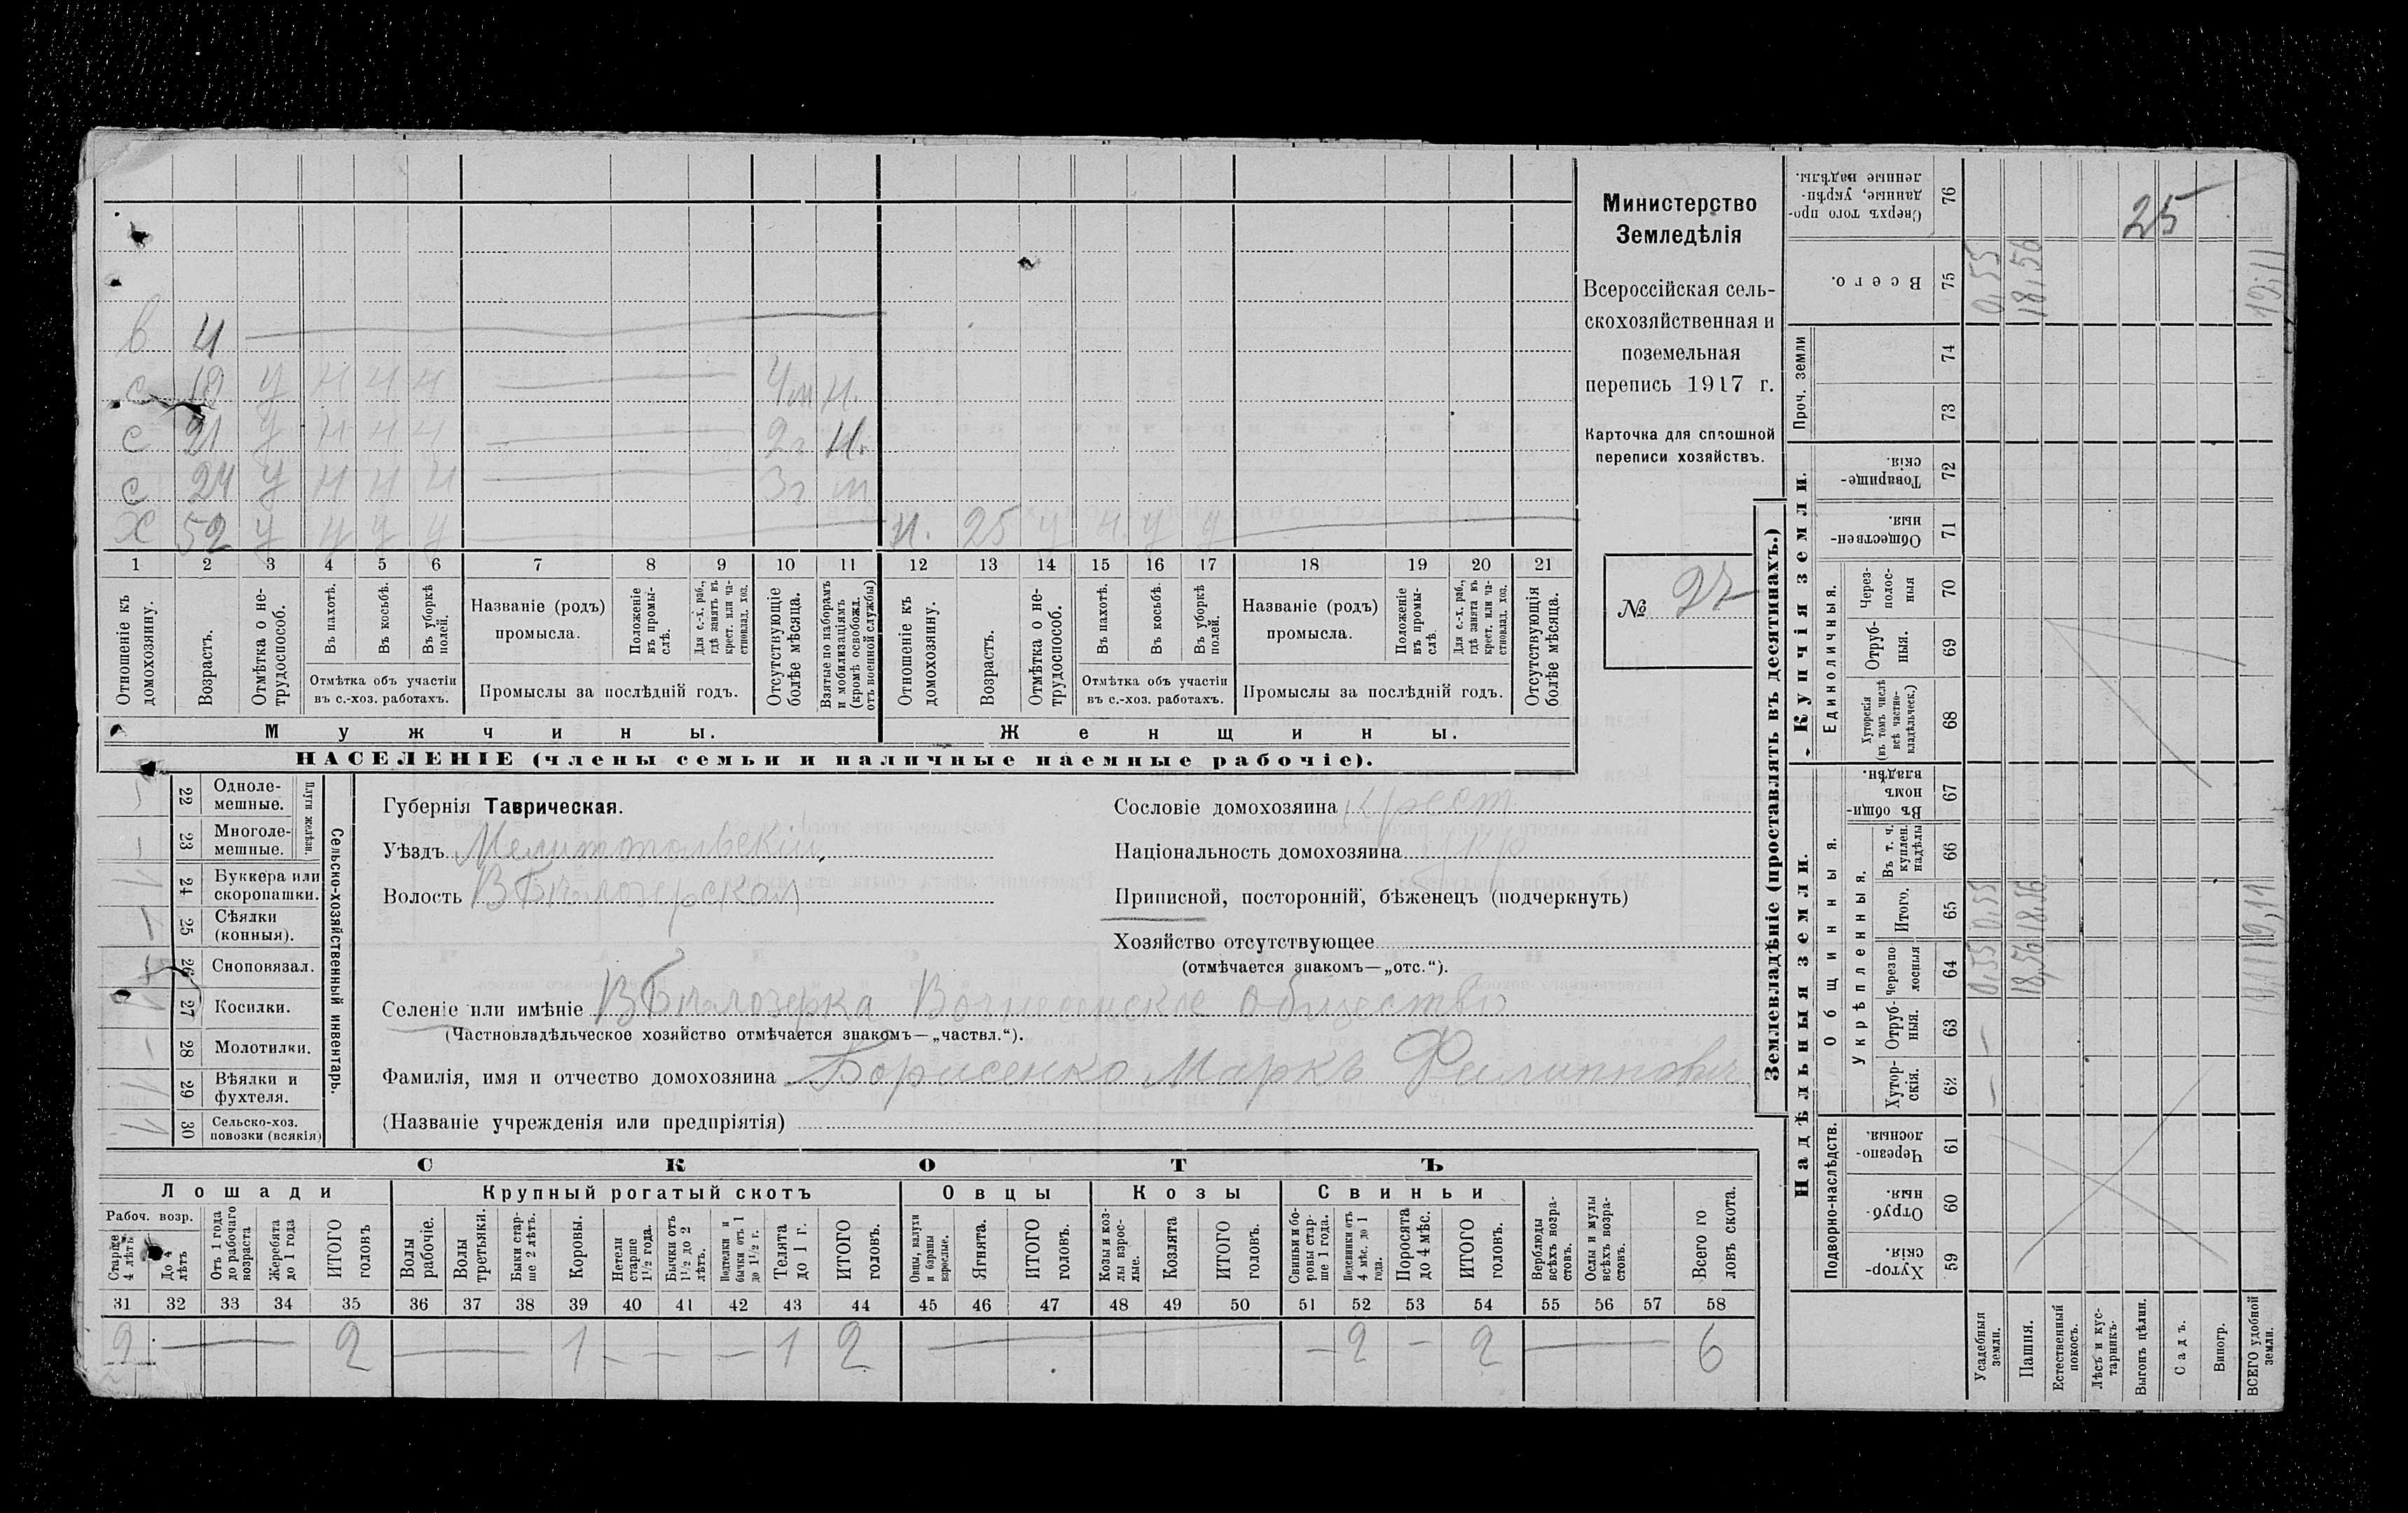 в 4
с 19 у н н н 4м н.
с 21 у н н н 2г н.
с 24 у н н н 3г м
х 52 у у у у н. 25 у н. у у
1 2 3 4 5 6 7 8 9 10 11 12 13 14 15 16 17 18 19 20 21
Отношеніе къ домохозяину.
Возрастъ.
Отмѣтка о не-трудоспособ.
Въ пахотѣ.
Въ косьбѣ.
Въ уборкѣ полей.
Отмѣтка объ участіи
въ с.-хоз. работахъ.
Названіе (родъ)
промысла.
Положеніе въ промы-слѣ.
Для с.-х. раб., гдѣ занятъ въ крест. или ча-стновлад. хоз.
Промыслы за послѣдній годъ.
Отсутствующіе болѣе мѣсяца.
Взятые по наборамъ и мобилизаціямъ (кромѣ освобожд. отъ военной службы)
Отношеніе къ домохозяину.
Возрастъ.
Отмѣтка о не-трудоспособ.
Въ пахотѣ.
Въ косьбѣ.
Въ уборкѣ полей.
Отмѣтка объ участіи
въ с.-хоз. работахъ.
Названіе (родъ)
промысла.
Положеніе въ промы-слѣ.
Для с.-х. раб., гдѣ занята въ крест. или ча-стновлад. хоз.
Промыслы за послѣдній годъ.
Отсутствующія болѣе мѣсяца.
Мужчины.
Женщины.
НАСЕЛЕНІЕ (члены семьи и наличные наемные рабочіе).
Министерство
Земледѣлія
Всероссійская сель-
скохозяйственная и
поземельная
перепись 1917 г.
Карточка для сплошной
переписи хозяйствъ.
№ 27
Сельско-хозяйственный инвентарь.
Плуги желѣзн.
22 Одноле-
мешные.
23 Многоле-
мешные.
24 Буккера или
скоропашки. 1
25 Сѣялки
(конныя).
26 Сноповязал.
27 Косилки. 1
28 Молотилки.
29 Вѣялки и
фухтеля. 1
30 Сельско-хоз.
повозки (всякія) 1
Губернія Таврическая.
Уѣздъ Мелитопольскій
Волость В Бѣлозерская
Сословіе домохозяина крест
Національность домохозяина укр
Приписной, посторонній, бѣженецъ (подчеркнуть)
Хозяйство отсутствующее
(отмѣчается знакомъ—„отс.“).
Селеніе или имѣніе В Бѣлозерка Вознесенское общество
(Частновладѣльческое хозяйство отмѣчается знакомъ—„частвл.“).
Фамилія, имя и отчество домохозяина Борисенко Маркъ Филиппович
(Названіе учрежденія или предпріятія)
СКОТЪ
Лошади Крупный рогатый скотъ Овцы Козы Свиньи
Рабоч. возр.
Старше 4 лѣтъ
До 4 лѣтъ
Отъ 1 года до рабочаго возраста
Жеребята до 1 года
ИТОГО головъ
Волы рабочіе.
Волы третьяки.
Быки стар-ше 2 лѣтъ.
Коровы.
Нетели старше 1½ года.
Бычки отъ 1½ до 2 лѣтъ.
Подтелки и бычки отъ 1 до 1½ г.
Телята до 1 г.
ИТОГО головъ.
Овцы, валухи и бараны взрослые.
Ягнята.
ИТОГО головъ.
Козы и коз-лы взрос-лые.
Козлята
ИТОГО головъ.
Свиньи и бо-ровы стар-ше 1 года.
Подсвинки отъ 4 мѣс. до 1 года.
Поросята до 4 мѣс.
ИТОГО головъ.
Верблюды всѣхъ возра-стовъ.
Ослы и мулы всѣхъ возра-стовъ.
Всего го ловъ скота.
31 32 33 34 35 36 37 38 39 40 41 42 43 44 45 46 47 48 49 50 51 52 53 54 55 56 57 58
2 — 2 — 1 — — — 1 2 — — 2 — 2 — 6
Землевладѣніе (проставлять въ десятинахъ.)
Надѣльныя земли. Купчія земли.
Подворно-наслѣдств.
Общинныя.
Укрѣпленныя.
Единоличныя.
Проч. земли
Хутор-скія. 59
Отруб-ныя. 60
Черезпо-лосныя. 61
Хутор-скія. 62
Отруб-ныя. 63
Черезпо лосныя 64
Итого. 65
Въ т. ч. куплен. надѣлы 66
Въ общи-номъ владѣн. 67
Хуторскія (въ томъ числѣ всѣ частно-владѣльческ.) 68
Отруб-ныя. 69
Через-полос-ныя 70
Обществен-ныя. 71
Товарище-скія. 72
73
74
Всего. 75
Сверхъ того про-данные, укрѣп-ленные надѣлы. 76
Усадебныя земли. — — 0,55 0,55 0,55
Пашня. 18,56 18,56 18,56
Естественный покосъ.
Лѣсъ и кус-тарникъ.
Выгонъ цѣлин.
Садъ.
Виногр.
ВСЕГО удобной земли. 19,11 19,11 19,11
25